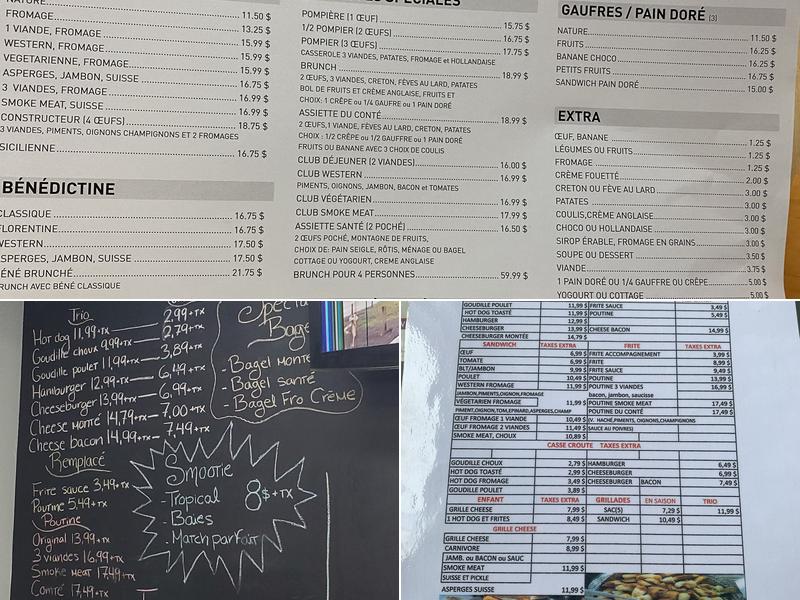 FROMAGE 11.50 $
1 VIANDE, FROMAGE 13.25 $
WESTERN, FROMAGE 15.99 $
VEGETARIENNE, FROMAGE 15.99 $
ASPERGES, JAMBON, SUISSE 15.99 $
3 VIANDES, FROMAGE 16.75 $
SMOKE MEAT, SUISSE 16.99 $
CONSTRUCTEUR (4 ŒUFS) 16.99 $
3 VIANDES, PIMENTS, OIGNONS CHAMPIGNONS ET 2 FROMAGES 18.75 $
SICILIENNE 16.75 $
BÉNÉDICTINE
CLASSIQUE 16.75 $
FLORENTINE 16.75 $
WESTERN 17.50 $
ASPERGES, JAMBON, SUISSE 17.50 $
BÉNÉ BRUNCHÉ 21.75 $
BRUNCH AVEC BÉNÉ CLASSIQUE
POMPIÈRE (1 ŒUF) 15.75 $
1/2 POMPIER (2 ŒUFS) 16.75 $
POMPIER (3 ŒUFS) 17.75 $
CASSEROLE 3 VIANDES, PATATES, FROMAGE et HOLLANDAISE
BRUNCH 18.99 $
2 ŒUFS, 3 VIANDES, CRETON, FÈVES AU LARD, PATATES
BOL DE FRUITS ET CRÈME ANGLAISE, FRUITS ET
CHOIX: 1 CRÊPE ou 1/4 GAUFRE ou 1 PAIN DORÉ
ASSIETTE DU CONTÉ 18.99 $
2 ŒUFS,1 VIANDE, FÈVES AU LARD, CRETON, PATATES
CHOIX : 1/2 CRÊPE ou 1/2 GAUFFRE ou 1 PAIN DORÉ
FRUITS OU BANANE AVEC 3 CHOIX DE COULIS
CLUB DÉJEUNER (2 VIANDES) 16.00 $
CLUB WESTERN 16.99 $
PIMENTS, OIGNONS, JAMBON, BACON et TOMATES
CLUB VÉGÉTARIEN 16.99 $
CLUB SMOKE MEAT 17.99 $
ASSIETTE SANTÉ (2 POCHÉ) 16.50 $
2 ŒUFS POCHÉ, MONTAGNE DE FRUITS,
CHOIX DE: PAIN SEIGLE, RÔTIS, MÉNAGE OU BAGEL
COTTAGE OU YOGOURT, CREME ANGLAISE
BRUNCH POUR 4 PERSONNES 59.99 $
GAUFRES / PAIN DORÉ (3)
NATURE 11.50 $
FRUITS 16.25 $
BANANE CHOCO 16.25 $
PETITS FRUITS 16.75 $
SANDWICH PAIN DORÉ 15.00 $
EXTRA
ŒUF, BANANE 1.25 $
LÉGUMES OU FRUITS 1.25 $
FROMAGE 1.25 $
CRÈME FOUETTÉ 2.00 $
CRETON OU FÈVE AU LARD 3.00 $
PATATES 3.00 $
COULIS,CRÈME ANGLAISE 3.00 $
CHOCO OU HOLLANDAISE 3.00 $
SIROP ÉRABLE, FROMAGE EN GRAINS 3.00 $
SOUPE OU DESSERT 3.50 $
VIANDE 3.75 $
1 PAIN DORÉ OU 1/4 GAUFFRE OU CRÊPE 5.00 $
YOGOURT OU COTTAGE 5.00 $
Trio
Hot dog 11,99+TX 2,99+TX
Goudille choux 9,99+TX 2,79+TX
Goudille poulet 11,99+TX 3,89+TX
Hamburger 12,99+TX 6,49+TX
Cheeseburger 13,99+TX 6,99+TX
Cheese monté 14,79+TX 7,00+TX
Cheese bacon 14,99+TX 7,49+TX
Remplacé
Frite sauce 3,49+TX
Poutine 5,49+TX
Poutine
Original 13,99+TX
3 viandes 16,99+TX
Smoke Meat 17,49+TX
Comté 17,49+TX
- Bagel santé
- Bagel Fro Crème
Smootie
- Tropical
- Baies
- Match parfait
8$+TX
GOUDILLE POULET 11,99 $ FRITE SAUCE 3,49 $
HOT DOG TOASTÉ 11,99 $ POUTINE 5,49 $
HAMBURGER 12,99 $
CHEESEBURGER 13,99 $ CHEESE BACON 14,99 $
CHEESEBURGER MONTÉE 14,79 $
SANDWICH TAXES EXTRA FRITE TAXES EXTRA
ŒUF 6,99 $ FRITE ACCOMPAGNEMENT 3,99 $
TOMATE 6,99 $ FRITE 8,99 $
BLT/JAMBON 9,99 $ FRITE SAUCE 9,49 $
POULET 10,49 $ POUTINE 13,99 $
WESTERN FROMAGE 11,99 $ POUTINE 3 VIANDES 16,99 $
JAMBON,PIMENTS,OIGNON,FROMAGE bacon, jambon, saucisse
VÉGETARIEN FROMAGE 11,99 $ POUTINE SMOKE MEAT 17,49 $
PIMENT,OIGNON,TOM,EPINARD,ASPERGES,CHAMP POUTINE DU CONTÉ 17,49 $
ŒUF FROMAGE 1 VIANDE 10,49 $ (V. HACHÉ,PIMENTS, OIGNONS,CHAMPIGNONS
ŒUF FROMAGE 2 VIANDES 11,49 $ SAUCE AU POIVRES)
SMOKE MEAT, CHOUX 10,89 $
CASSE CROUTE TAXES EXTRA
GOUDILLE CHOUX 2,79 $ HAMBURGER 6,49 $
HOT DOG TOASTÉ 2,99 $ CHEESEBURGER 6,99 $
HOT DOG FROMAGE 3,49 $ CHEESEBURGER BACON 7,49 $
GOUDILLE POULET 3,89 $
ENFANT TAXES EXTRA GRILLADES EN SAISON TRIO
GRILLE CHEESE 7,99 $ SAC(5) 7,29 $ 11,99 $
1 HOT DOG ET FRITES 8,49 $ SANDWICH 10,49 $
GRILLE CHEESE
GRILLE CHEESE 7,99 $
CARNIVORE 8,99 $
JAMB. OU BACON OU SAUC
SMOKE MEAT 11,99 $
SUISSE ET PICKLE
ASPERGES SUISSE 11,99 $